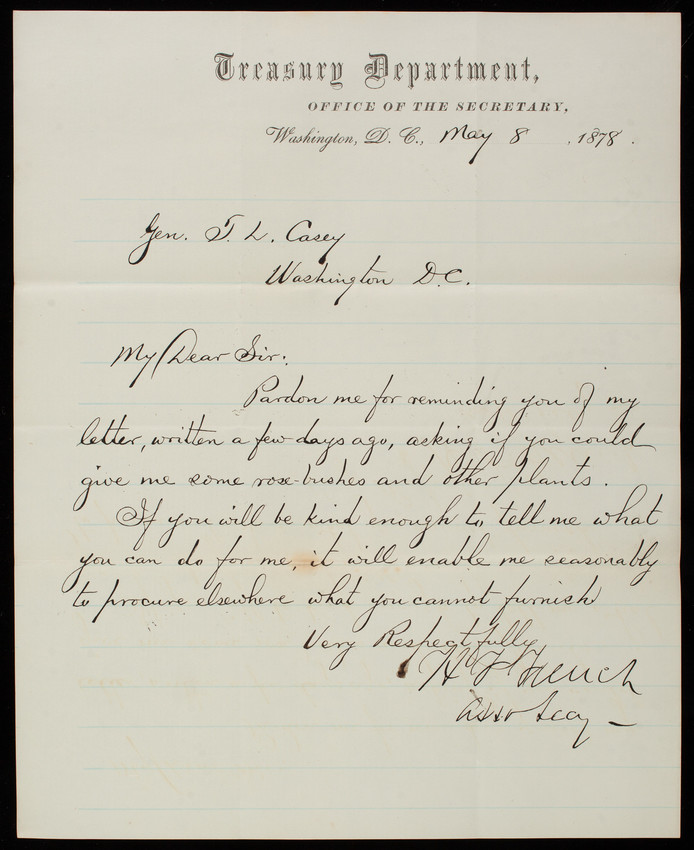 Treasury Department,
OFFICE OF THE SECRETARY,
Washington, D. C., May 8, 1878.
Gen. T. L. Casey
Washington D.C.
My Dear Sir:
Pardon me for reminding you of my
letter, written a few days ago, asking if you could
give me some rose-bushes and other plants.
If you will be kind enough to tell me what
you can do for me, it will enable me seasonably
to procure elsewhere what you cannot furnish
Very Respectfully
H F French
Asst Secy